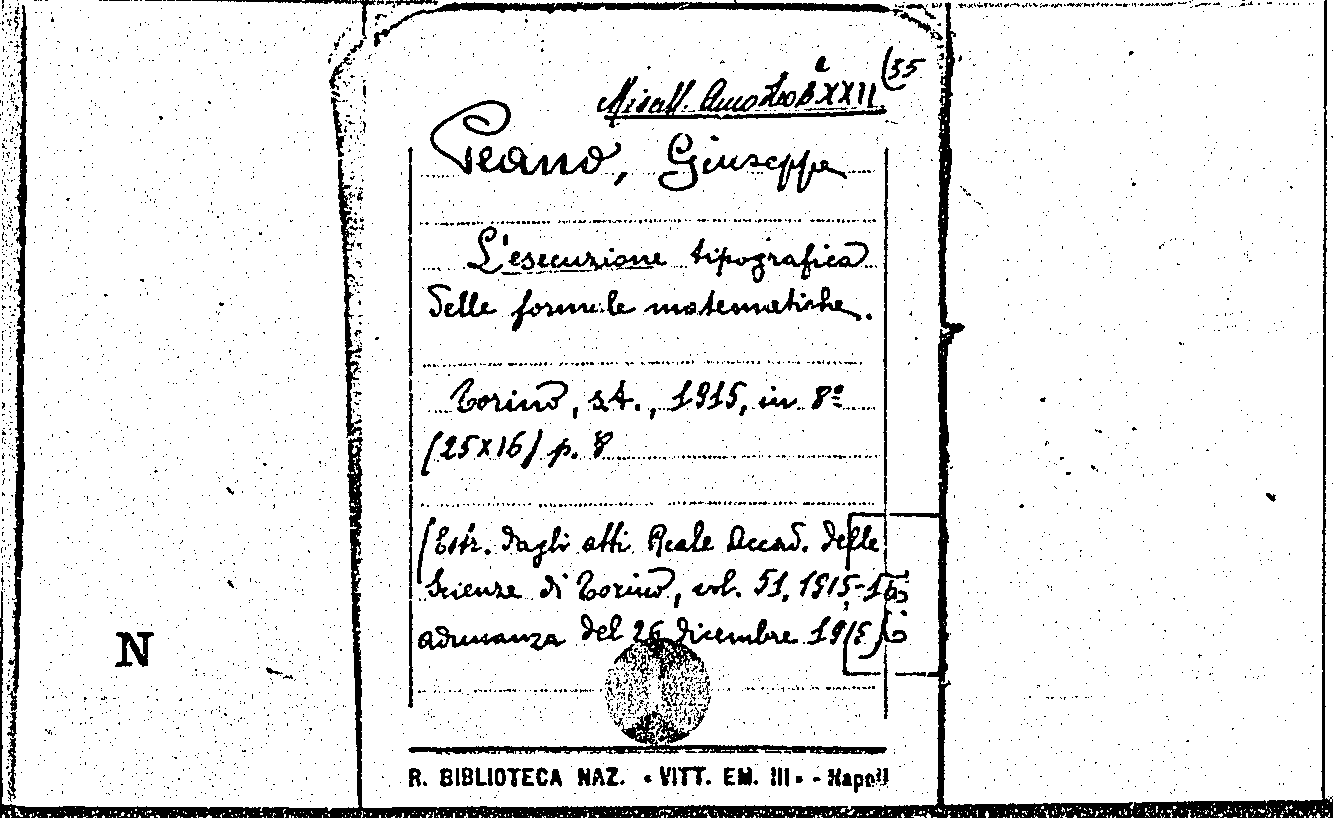 (55
Miscell. Amodeo B XXII
Peano, Giuseppe
L'esecuzione tipografica
delle formule matematiche.
Torino, s.t., 1915, in 8º
(25x16) p. 8
(Estr. dagli atti Reale Accad. delle
Scienze di Torino, vol. 51, 1915-16,
adunanza del 26 dicembre 1915)
N
R. BIBLIOTECA NAZ. « VITT. EM. III » - Napoli